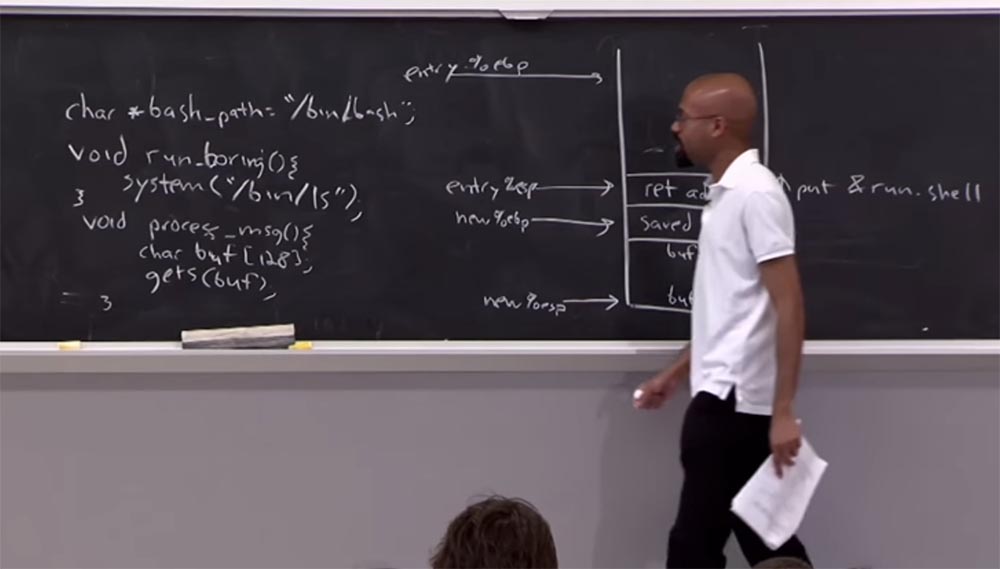 char *bash_path= "/bin/bash";
void run_boring(){
system("/bin/ls");
}
void process_msg(){
char buf[128];
gets(buf);
}
entry %ebp
entry %esp
new %ebp
new %esp
ret ad
saved
buf
buf
put & run_shell